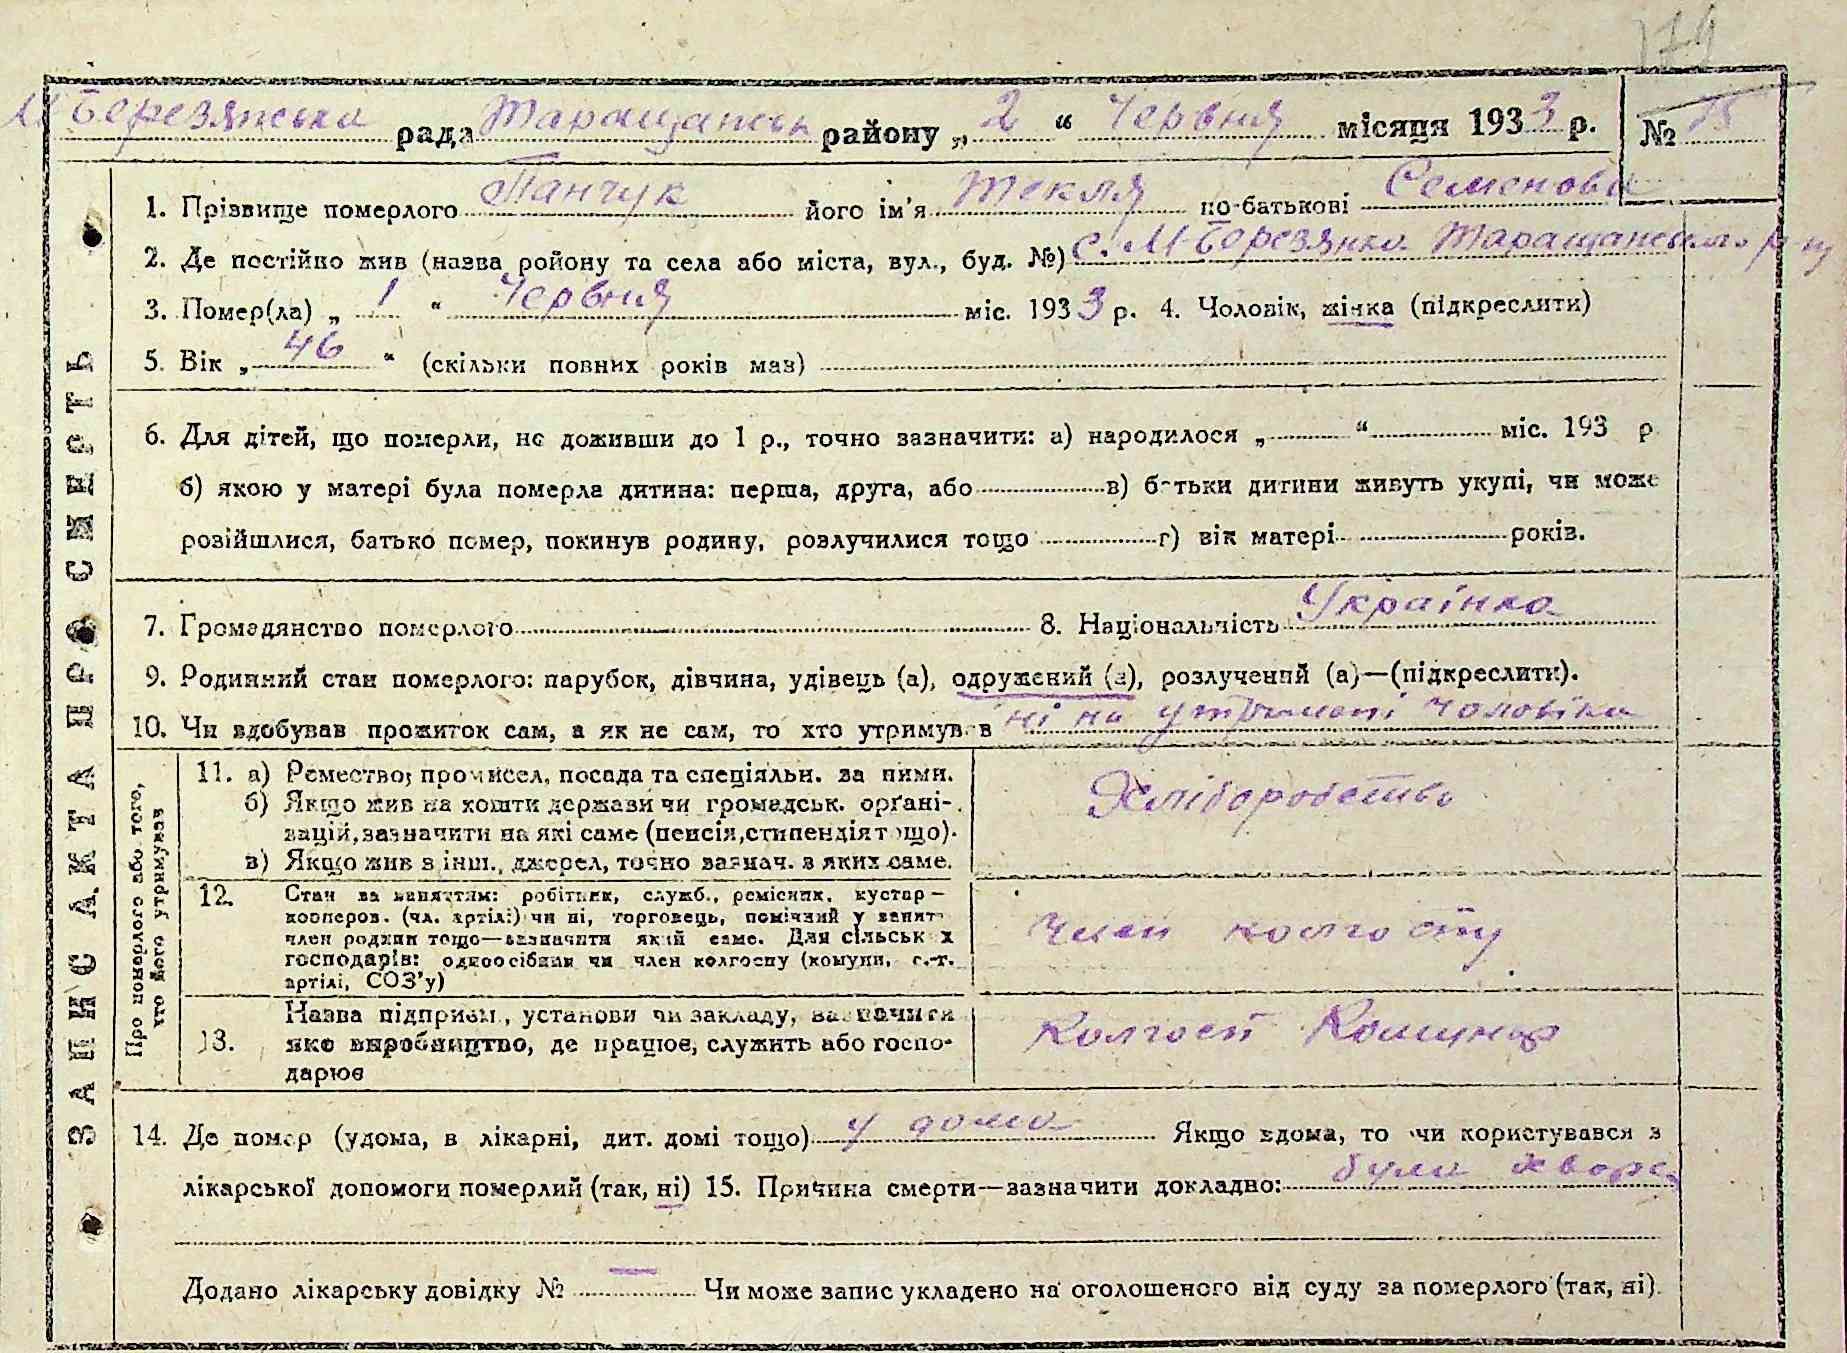 179
М Березянська рада Таращанськ району „ 2 “ Червня місяця 1933 р. № 75
ЗАПИС АКТА ПРО СМЕРТЬ
1. Прізвище померлого Панчук його ім’я Текля по-батькові Семенова
2. Де постійно жив (назва району та села або міста, вул., буд. №) с. М-Березянка Таращанського р-ну
3. Помер(ла) „ 1 “ Червня міс. 1933 р. 4. Чоловік, жінка (підкреслити)
5. Вік „ 46 “ (скільки повних років мав)
6. Для дітей, що померли, не доживши до 1 р., точно зазначити: а) народилося „ “ міс. 193 р
б) якою у матері була померла дитина: перша, друга, або в) батьки дитини живуть укупі, чи може
розійшлися, батько помер, покинув родину, розлучилися тощо г) вік матері років.
7. Громадянство померлого 8. Національність Українка
9. Родинний стан померлого: парубок, дівчина, удівець (а), одружений (а), розлучений (а)—(підкреслити).
10. Чи здобував прожиток сам, а як не сам, то хто утримував ні на утримані чоловіка
Про померлого або того, хто його утримував
11. а) Ремество, промисел, посада та спеціяльн. за ними.
б) Якщо жив на кошти держави чи громадськ. орґані-
зацій, зазначити на які саме (пенсія, стипендія тощо).
в) Якщо жив з інш. джерел, точно зазнач. з яких саме.
Хліборобство
12. Стан за заняттям: робітник, служб., ремісник, кустар—
кооперов. (чл. артілі) чи ні, торговець, помічний у занят.
член родини тощо—зазначити який саме. Для сільських
господарів: одноосібник чи член колгоспу (комуни, с.-г.
артілі, СОЗ’у)
Член колгоспу
13. Назва підприєм., установи чи закладу, зазначити
яке виробництво, де працює, служить або госпо-
дарює
Колгосп Комунар
14. Де помер (удома, в лікарні, дит. домі тощо) у дома Якщо вдома, то чи користувався з
лікарської допомоги померлий (так, ні) 15. Причина смерти—зазначити докладно: була хвора
Додано лікарську довідку № — Чи може запис укладено на оголошеного від суду за померлого (так, ні).